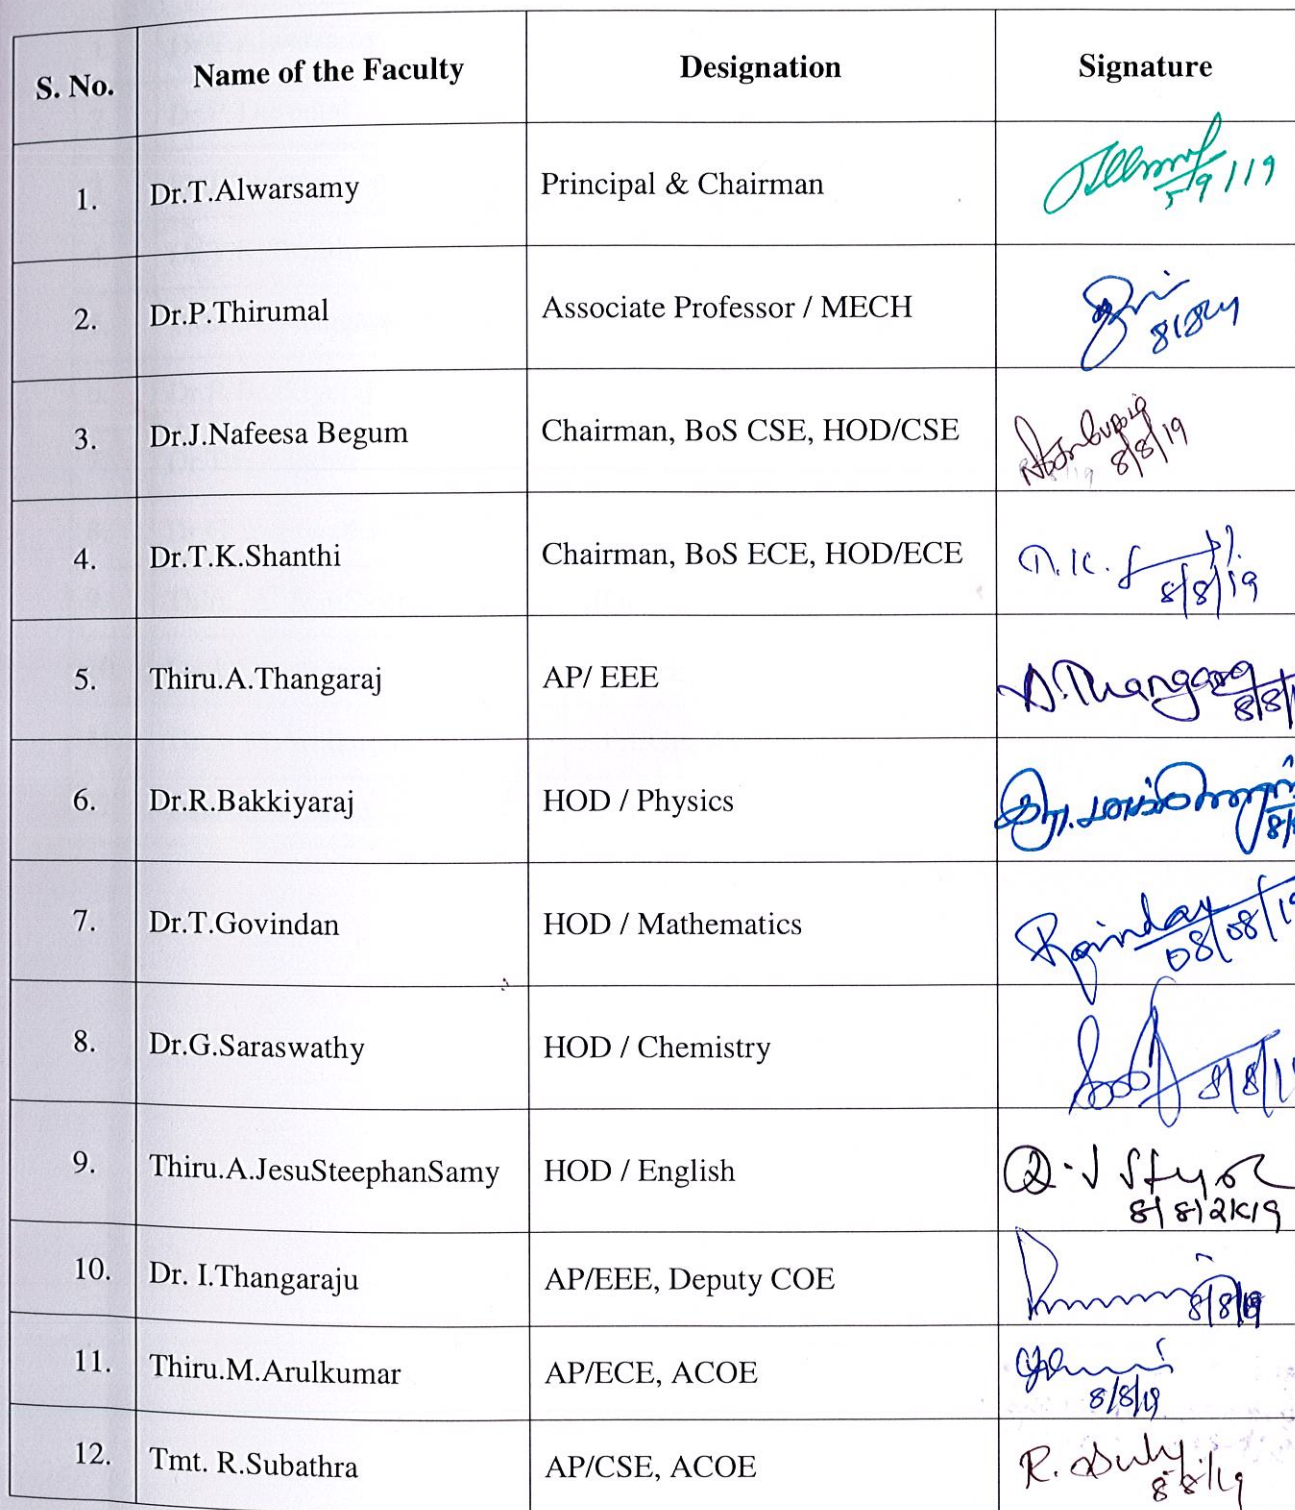 S. No. Name of the Faculty Designation Signature
1. Dr.T.Alwarsamy Principal & Chairman 5/9/19
2. Dr.P.Thirumal Associate Professor / MECH
3. Dr.J.Nafeesa Begum Chairman, BoS CSE, HOD/CSE 8/8/19
4. Dr.T.K.Shanthi Chairman, BoS ECE, HOD/ECE 8/8/19
5. Thiru.A.Thangaraj AP/ EEE A.Thangaraj 8/8/
6. Dr.R.Bakkiyaraj HOD / Physics 8/
7. Dr.T.Govindan HOD / Mathematics 08/08/19
8. Dr.G.Saraswathy HOD / Chemistry 8/8/1
9. Thiru.A.JesuSteephanSamy HOD / English 8/8/2K19
10. Dr. I.Thangaraju AP/EEE, Deputy COE 8/8/19
11. Thiru.M.Arulkumar AP/ECE, ACOE 8/8/19
12. Tmt. R.Subathra AP/CSE, ACOE 8/8/19